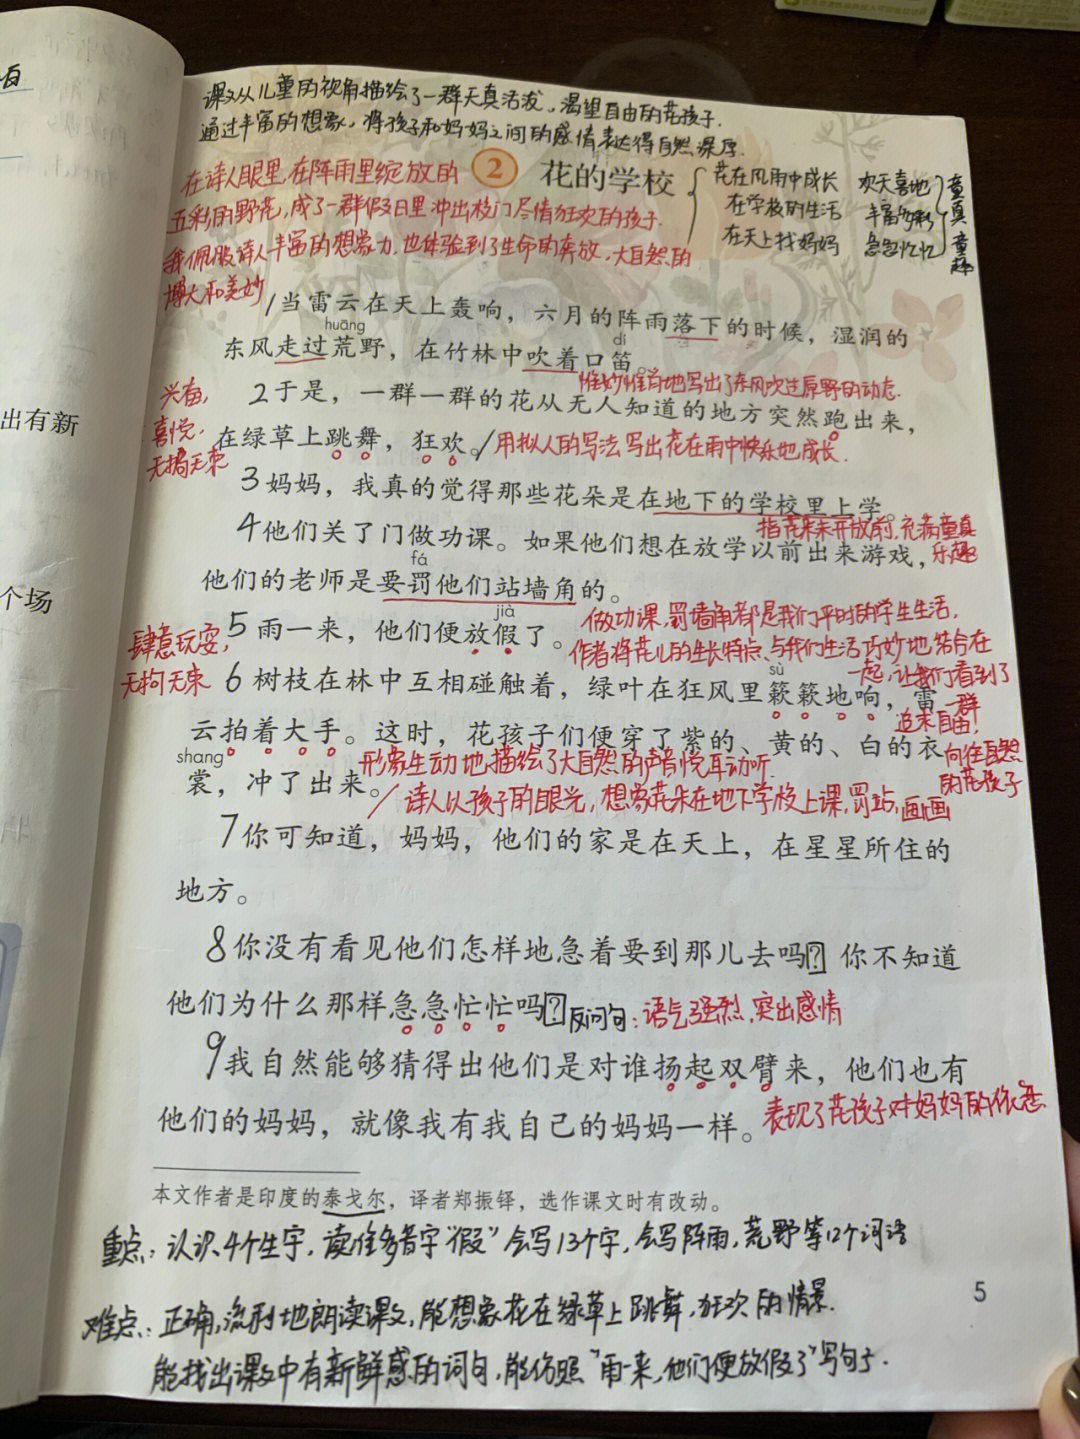 课文从儿童的视角描绘了一群天真活泼,渴望自由的花孩子.
通过丰富的想象,将孩子和妈妈之间的感情表达得自然深厚.
在诗人眼里,在阵雨里绽放的
五彩的野花,成了一群假日里冲出校门尽情狂欢的孩子.
我佩服诗人丰富的想象力,也体验到了生命的奔放,大自然的
博大和美妙
2 花的学校
花在风雨中成长 欢天喜地
在学校的生活 丰富多彩
在天上找妈妈 急急忙忙
童真
童趣
1当雷云在天上轰响,六月的阵雨落下的时候,湿润的
huāng dí
东风走过荒野,在竹林中吹着口笛。
惟妙惟肖地写出了东风吹过原野的动态.
兴奋,
喜悦,
无拘无束
2于是,一群一群的花从无人知道的地方突然跑出来,
在绿草上跳舞,狂欢。/用拟人的写法写出花在雨中快乐地成长.
3妈妈,我真的觉得那些花朵是在地下的学校里上学。
指花朵未开放前,充满童真
乐趣
4他们关了门做功课。如果他们想在放学以前出来游戏,
fá
他们的老师是要罚他们站墙角的。
jià
5雨一来,他们便放假了。
做功课,罚墙角都是我们平时的学生生活,
作者将花儿的生长特点与我们生活巧妙地结合在
一起,让我们看到了
一群
追求自由,
向往自然
的花孩子
肆意玩耍,
无拘无束
sù
6树枝在林中互相碰触着,绿叶在狂风里簌簌地响,雷
云拍着大手。这时,花孩子们便穿了紫的、黄的、白的衣
shang
裳,冲了出来。
形象生动地描绘了大自然的声音悦耳动听.
/诗人以孩子的眼光,想象花朵在地下学校上课,罚站,画画
7你可知道,妈妈,他们的家是在天上,在星星所住的
地方。
8你没有看见他们怎样地急着要到那儿去吗? 你不知道
他们为什么那样急急忙忙吗?反问句:语气强烈,突出感情
9我自然能够猜得出他们是对谁扬起双臂来,他们也有
他们的妈妈,就像我有我自己的妈妈一样。表现了花孩子对妈妈的依恋
本文作者是印度的泰戈尔,译者郑振铎,选作课文时有改动。
重点:认识4个生字,读准多音字“假”会写13个字,会写阵雨,荒野等12个词语
难点:正确,流利地朗读课文,能想象花在绿草上跳舞,狂欢的情景.
能找出课文中有新鲜感的词句,能仿照“雨一来,他们便放假了”写句子.
5
出有新
个场